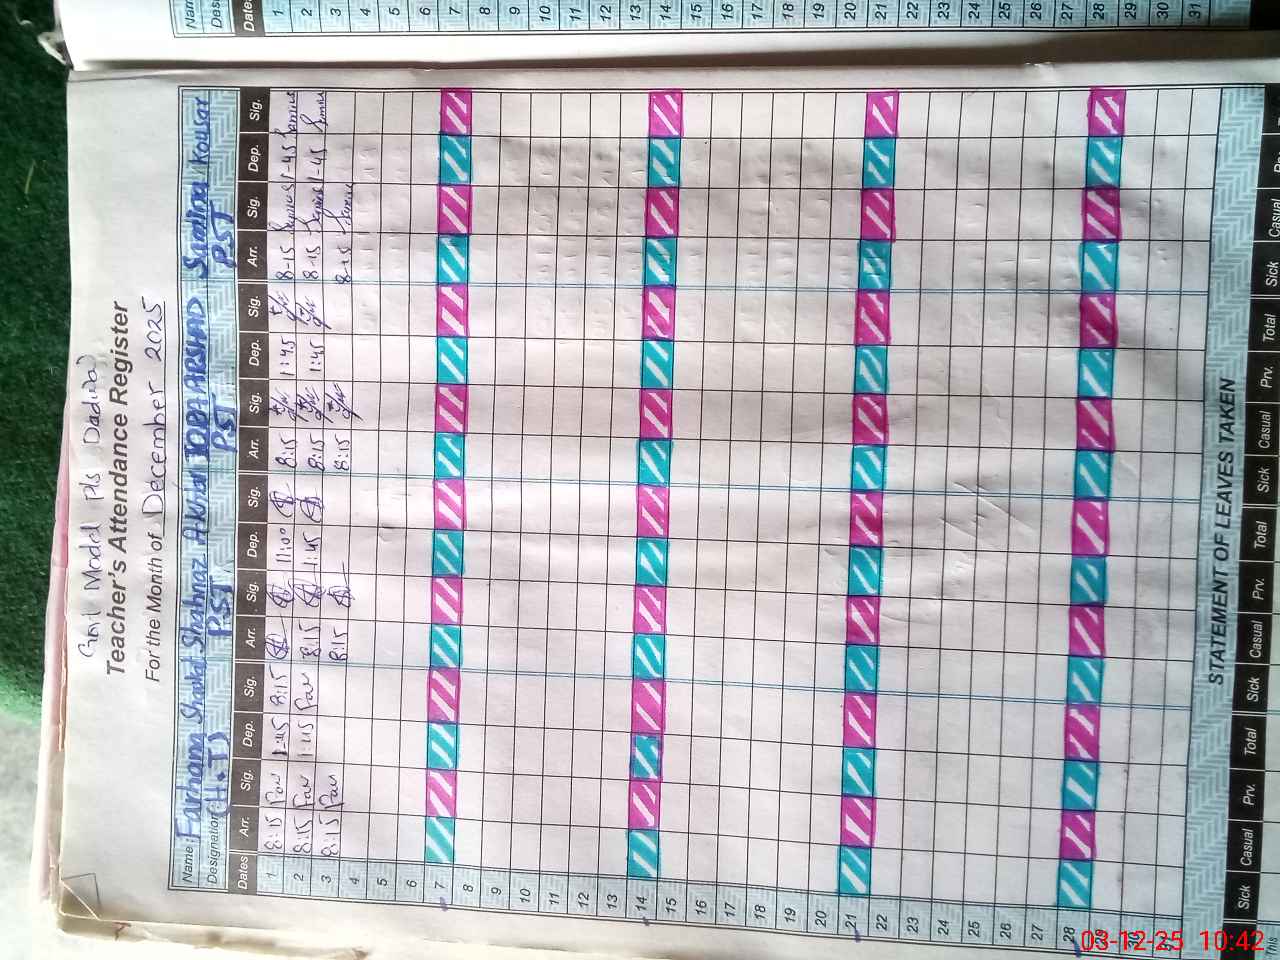 Govt Model P/s Dadiwal
Teacher's Attendance Register
For the Month of December 2025
Name: Farhana Shaukat Shahnaz Akhtar IQBA ARSHAD Sadia Kousar
Designation (H.T) P.S.T P.S.T P.S.T
Dates Arr. Sig. Dep. Sig. Arr. Sig. Dep. Sig. Arr. Sig. Dep. Sig. Arr. Sig. Dep. Sig.
1 8:15 Far 1:45 8:15 11:00 8:15 1:45 8-15 1-45
2 8:15 Far 1:45 Far 8:15 1:45 8:15 1:45 8-15 1-45
3 8:15 Far 8:15 8:15 8-15
4
5
6
7
8
9
10
11
12
13
14
15
16
17
18
19
20
21
22
23
24
25
26
27
28
29
30
31
STATEMENT OF LEAVES TAKEN
Sick Casual Prv. Total Sick Casual Prv. Total Sick Casual Prv. Total Sick Casual
This
Name
Desi
Dates
1
2
3
4
5
6
7
8
9
10
11
12
13
14
15
16
17
18
19
20
21
22
23
24
25
26
27
28
29
30
31
03-12-25 10:42